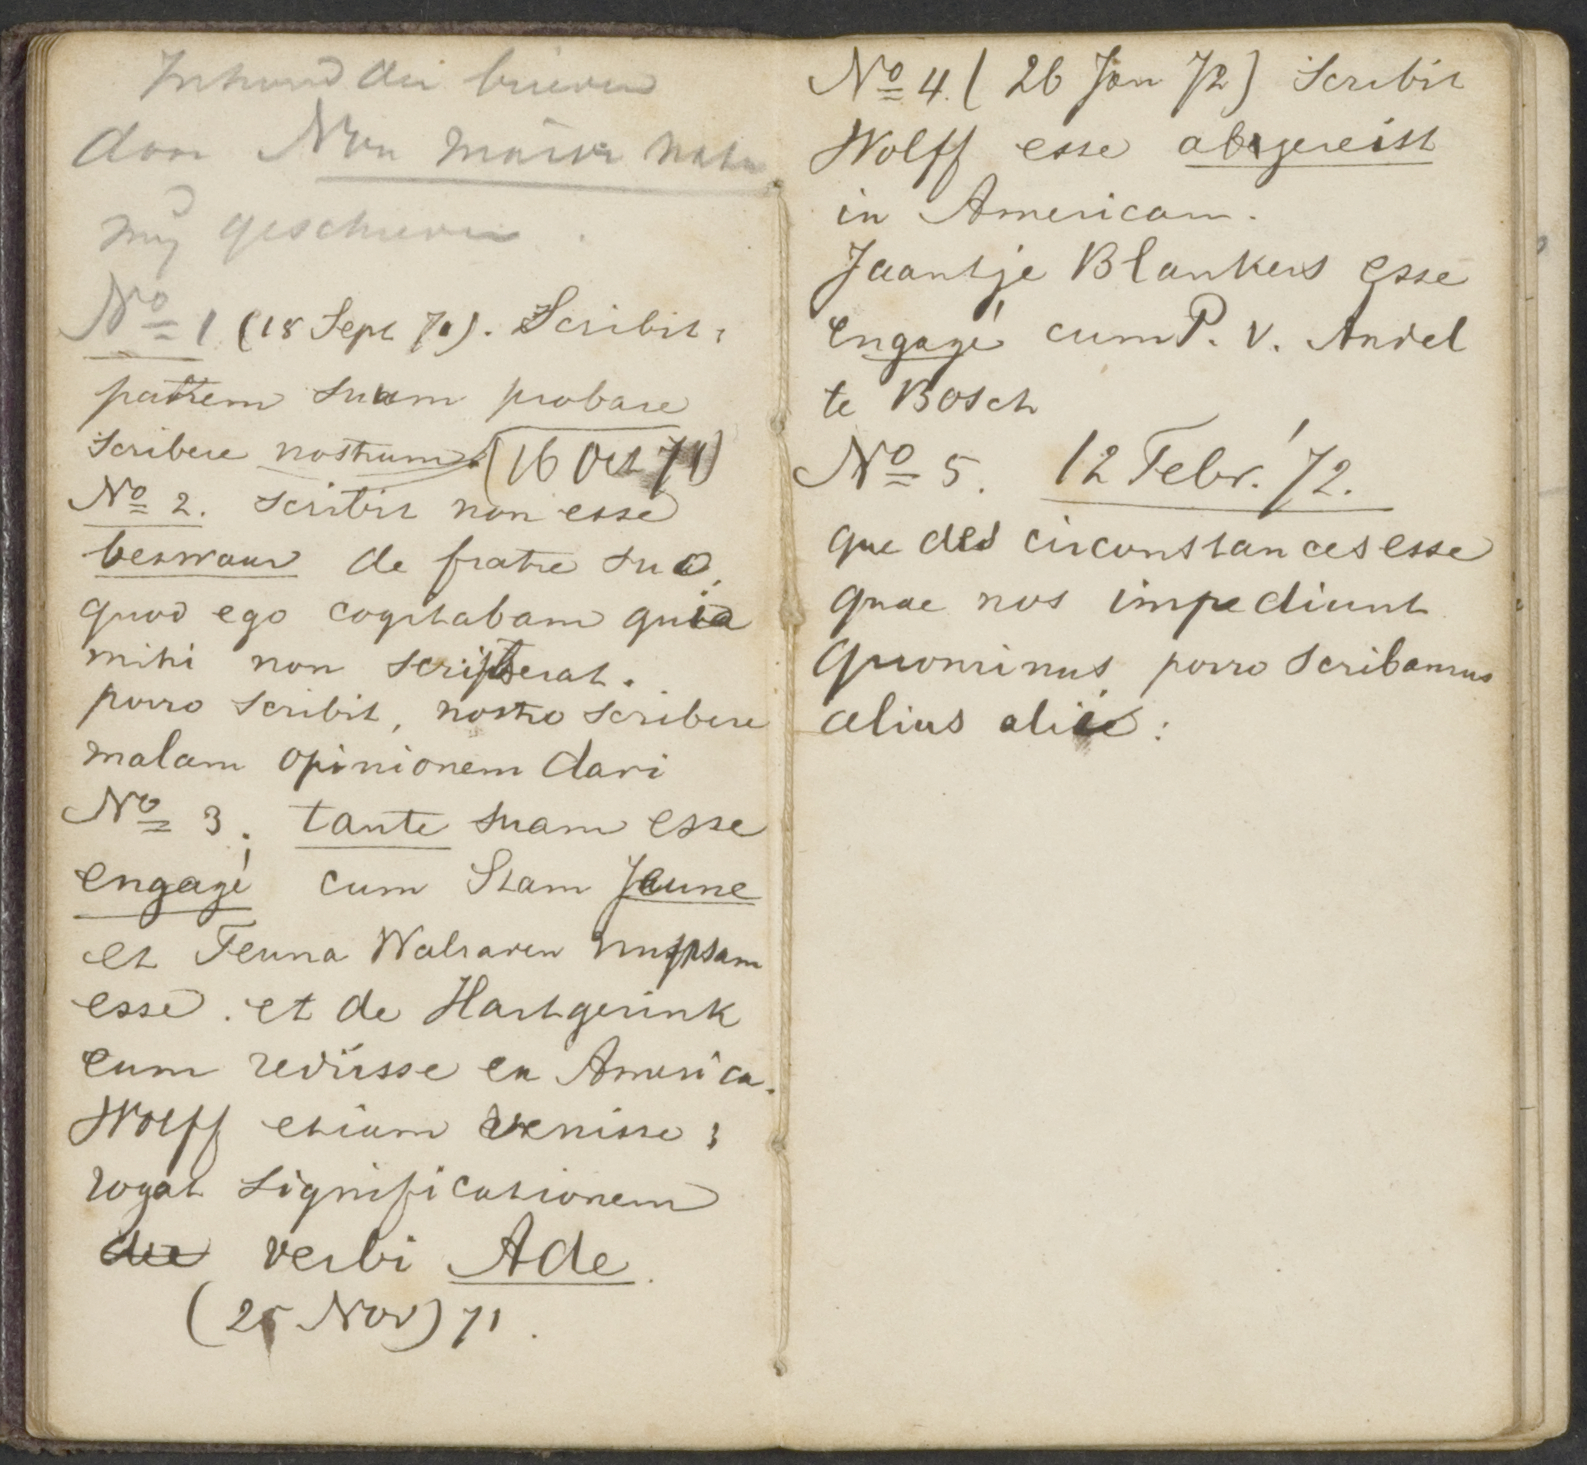 Inhoud der brieven
door
mij geschreven.
No 1 (18 Sept 71). Scribit:
patrem suum probare
scribere nostrum. (16 Oct 71)
No 2. scribit non esse
bezwaar de fratre suo,
quod ego cogitabam quia
mihi non scripserat.
porro scribit, nostro scribere
malam opinionem dari
No 3. tante suam esse
engagé cum Stam Jeune
et Teuna Walraven nuptam
esse. et de Hartgerink
eum rediisse ex America.
Wolff etiam venisse;
rogat significationem
verbi Ade.
(25 Nov) 71.
No 4. (26 Jan 72) Scribit
Wolff esse abgereist
in Americam.
Jaantje Blankers esse
engagé cum P. v. Andel
te Bosch
No 5. 12 Febr. '72.
que des circonstances esse
quae nos impediunt
quominus porro scribamus
alius alii: